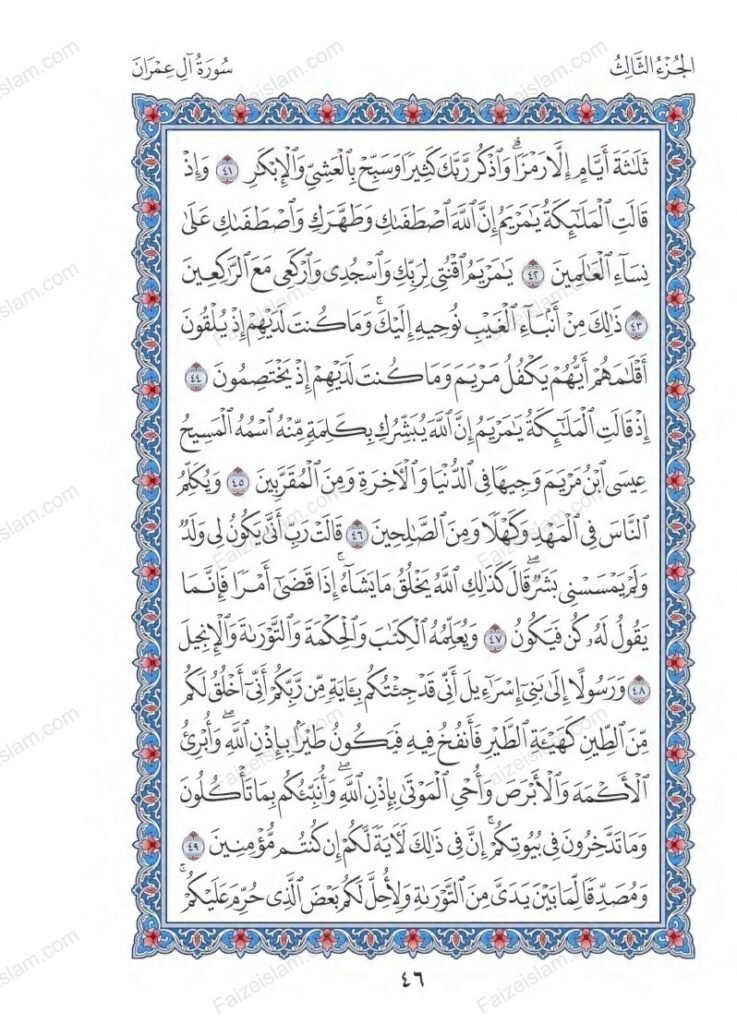 الجُزْءُ الثَّالِثُ
سُورَةُ آلِ عِمْرَان
ثَلَٰثَةَ أَيَّامٍ إِلَّا رَمْزًا ۗ وَٱذْكُر رَّبَّكَ كَثِيرًا وَسَبِّحْ بِٱلْعَشِيِّ وَٱلْإِبْكَٰرِ ﴿٤١﴾ وَإِذْ
قَالَتِ ٱلْمَلَٰٓئِكَةُ يَٰمَرْيَمُ إِنَّ ٱللَّهَ ٱصْطَفَىٰكِ وَطَهَّرَكِ وَٱصْطَفَىٰكِ عَلَىٰ
نِسَآءِ ٱلْعَٰلَمِينَ ﴿٤٢﴾ يَٰمَرْيَمُ ٱقْنُتِى لِرَبِّكِ وَٱسْجُدِى وَٱرْكَعِى مَعَ ٱلرَّٰكِعِينَ
﴿٤٣﴾ ذَٰلِكَ مِنْ أَنۢبَآءِ ٱلْغَيْبِ نُوحِيهِ إِلَيْكَ ۚ وَمَا كُنتَ لَدَيْهِمْ إِذْ يُلْقُونَ
أَقْلَٰمَهُمْ أَيُّهُمْ يَكْفُلُ مَرْيَمَ وَمَا كُنتَ لَدَيْهِمْ إِذْ يَخْتَصِمُونَ ﴿٤٤﴾
إِذْ قَالَتِ ٱلْمَلَٰٓئِكَةُ يَٰمَرْيَمُ إِنَّ ٱللَّهَ يُبَشِّرُكِ بِكَلِمَةٍ مِّنْهُ ٱسْمُهُ ٱلْمَسِيحُ
عِيسَى ٱبْنُ مَرْيَمَ وَجِيهًا فِى ٱلدُّنْيَا وَٱلْءَاخِرَةِ وَمِنَ ٱلْمُقَرَّبِينَ ﴿٤٥﴾ وَيُكَلِّمُ
ٱلنَّاسَ فِى ٱلْمَهْدِ وَكَهْلًا وَمِنَ ٱلصَّٰلِحِينَ ﴿٤٦﴾ قَالَتْ رَبِّ أَنَّىٰ يَكُونُ لِى وَلَدٌ
وَلَمْ يَمْسَسْنِى بَشَرٌ ۖ قَالَ كَذَٰلِكِ ٱللَّهُ يَخْلُقُ مَا يَشَآءُ ۚ إِذَا قَضَىٰٓ أَمْرًا فَإِنَّمَا
يَقُولُ لَهُۥ كُن فَيَكُونُ ﴿٤٧﴾ وَيُعَلِّمُهُ ٱلْكِتَٰبَ وَٱلْحِكْمَةَ وَٱلتَّوْرَىٰةَ وَٱلْإِنجِيلَ
﴿٤٨﴾ وَرَسُولًا إِلَىٰ بَنِىٓ إِسْرَٰٓءِيلَ أَنِّى قَدْ جِئْتُكُم بِـَٔايَةٍ مِّن رَّبِّكُمْ أَنِّىٓ أَخْلُقُ لَكُم
مِّنَ ٱلطِّينِ كَهَيْـَٔةِ ٱلطَّيْرِ فَأَنفُخُ فِيهِ فَيَكُونُ طَيْرًۢا بِإِذْنِ ٱللَّهِ ۖ وَأُبْرِئُ
ٱلْأَكْمَهَ وَٱلْأَبْرَصَ وَأُحْىِ ٱلْمَوْتَىٰ بِإِذْنِ ٱللَّهِ ۖ وَأُنَبِّئُكُم بِمَا تَأْكُلُونَ
وَمَا تَدَّخِرُونَ فِى بُيُوتِكُمْ ۚ إِنَّ فِى ذَٰلِكَ لَءَايَةً لَّكُمْ إِن كُنتُم مُّؤْمِنِينَ ﴿٤٩﴾
وَمُصَدِّقًا لِّمَا بَيْنَ يَدَىَّ مِنَ ٱلتَّوْرَىٰةِ وَلِأُحِلَّ لَكُم بَعْضَ ٱلَّذِى حُرِّمَ عَلَيْكُمْ ۚ
٤٦
Faizeislam.com